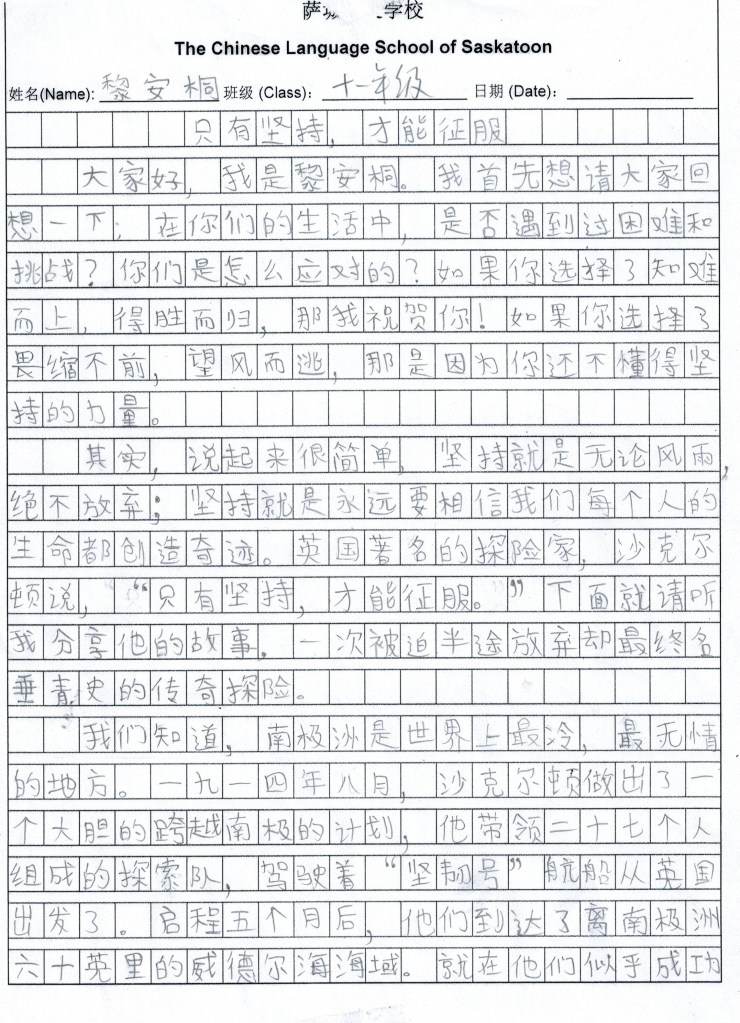 萨 学校
The Chinese Language School of Saskatoon
姓名(Name): 黎安桐 班级 (Class): 十一年级 日期 (Date):
只有坚持，才能征服
大家好，我是黎安桐。我首先想请大家回
想一下；在你们的生活中，是否遇到过困难和
挑战？你们是怎么应对的？如果你选择了知难
而上，得胜而归，那我祝贺你！如果你选择了
畏缩不前，望风而逃，那是因为你还不懂得坚
持的力量。
其实，说起来很简单，坚持就是无论风雨，
绝不放弃；坚持就是永远要相信我们每个人的
生命都创造奇迹。英国著名的探险家，沙克尔
顿说，“只有坚持，才能征服。”下面就请听
我分享他的故事。一次被迫半途放弃却最终名
垂青史的传奇探险。
我们知道，南极洲是世界上最冷，最无情
的地方。一九一四年八月，沙克尔顿做出了一
个大胆的跨越南极的计划，他带领二十七个人
组成的探索队，驾驶着“坚韧号”航船从英国
出发了。启程五个月后，他们到达了离南极洲
六十英里的威德尔海海域。就在他们似乎成功